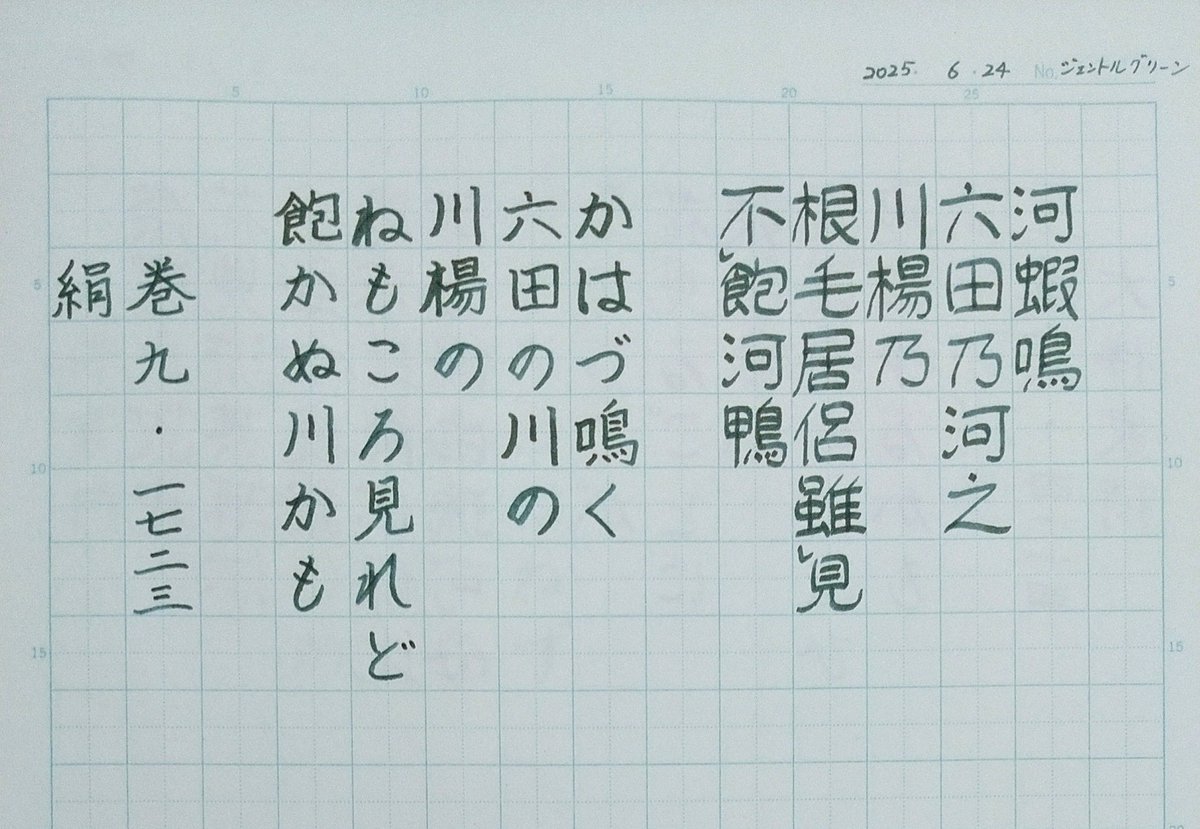 2025. 6. 24 No. ジェントルグリーン
5 10 15 20 25
河蝦鳴
六田乃河之
川楊乃
根毛居侶雖見
不飽河鴨
かはづ鳴く
六田の川の
川楊の
ねもころ見れど
飽かぬ川かも
巻九・一七二三
絹
5
10
15
5
10
15